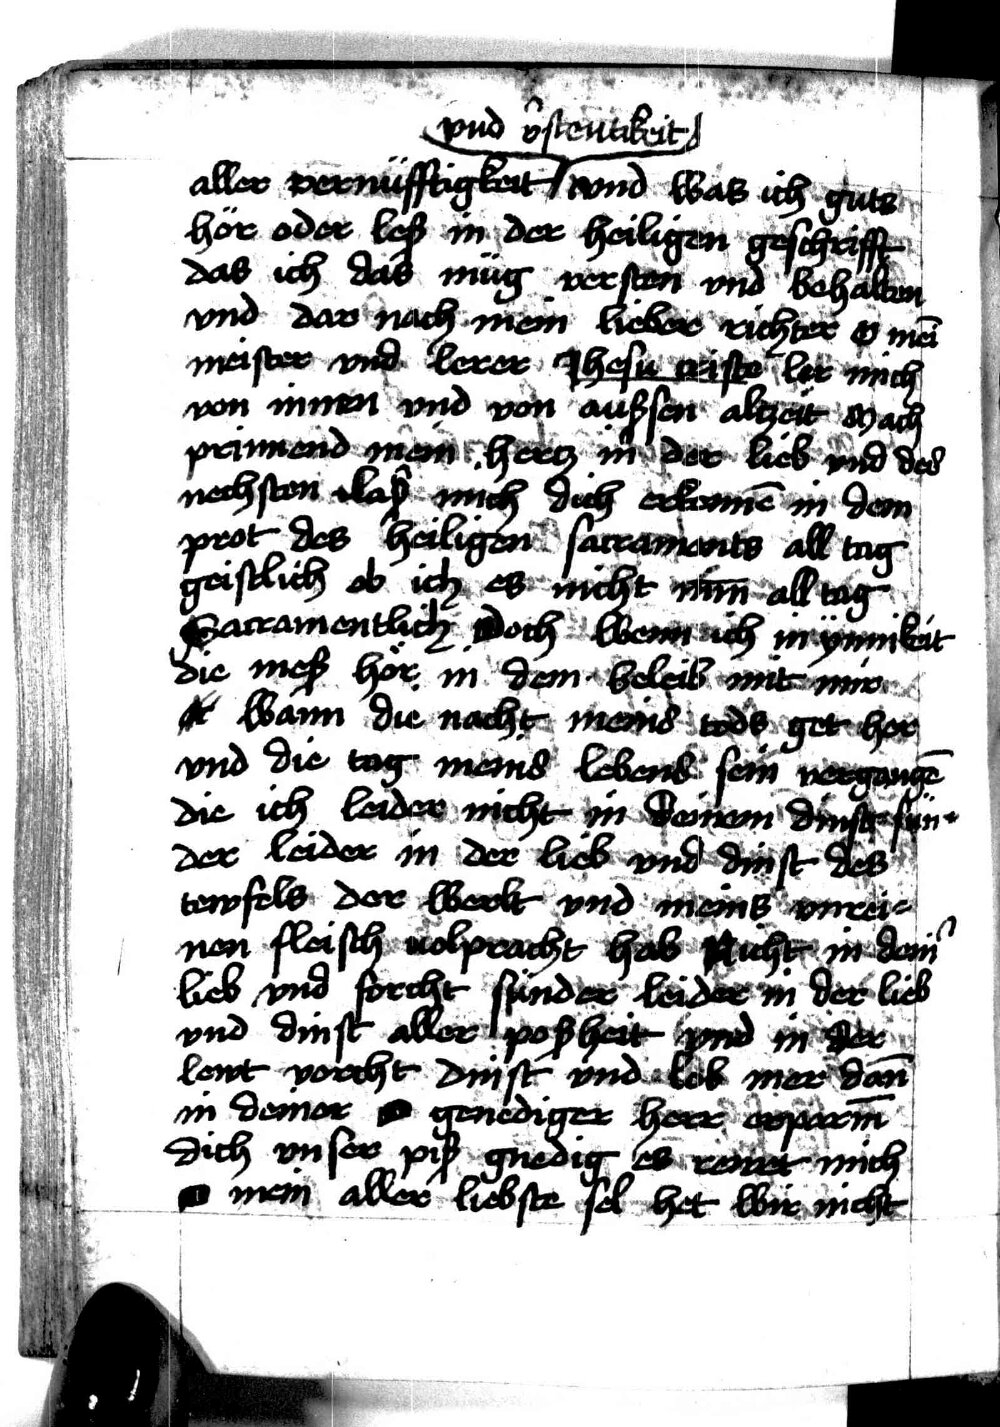 vnd v̂stentikeit
aller vernüfftigkeit vnd was ich guts
hör oder leß in der heiligen geschrifft
das ich das müg versten vnd behalten
vnd dar nach mein lieber richter O mei͞
meister vnd lerer Jhesu criste ler mich
von innen vnd von außsen altzeit Mach
prinnend mein hertz in der lieb vnd des
nechsten laß mich dich erkenne͞ in dem
prot des heiligen sacraments all tag
geistlich ob ich es nicht nim all tag
Sacramentlich Doch wenn ich in ÿnnikeit
die meß hör in dem beleib mit mir
wann die nacht meins tods get her
vnd die tag meins lebens sein vergange͞
die ich leider nicht in deinem dinst sün-
der leider in der lieb vnd dinst des
tewfels der werlt vnd meins vnrei-
nen fleisch uolpracht hab Nicht in dein̉
lieb vnd forcht sünder leider in der lieb
vnd dinst aller poßheit vnd in der
lewt vorcht dinst vnd lob mer dan͞
in deiner O genediger herr erparm
dich vnser piß gnedig es rewet mich
O mein aller liebste sel het wir nicht